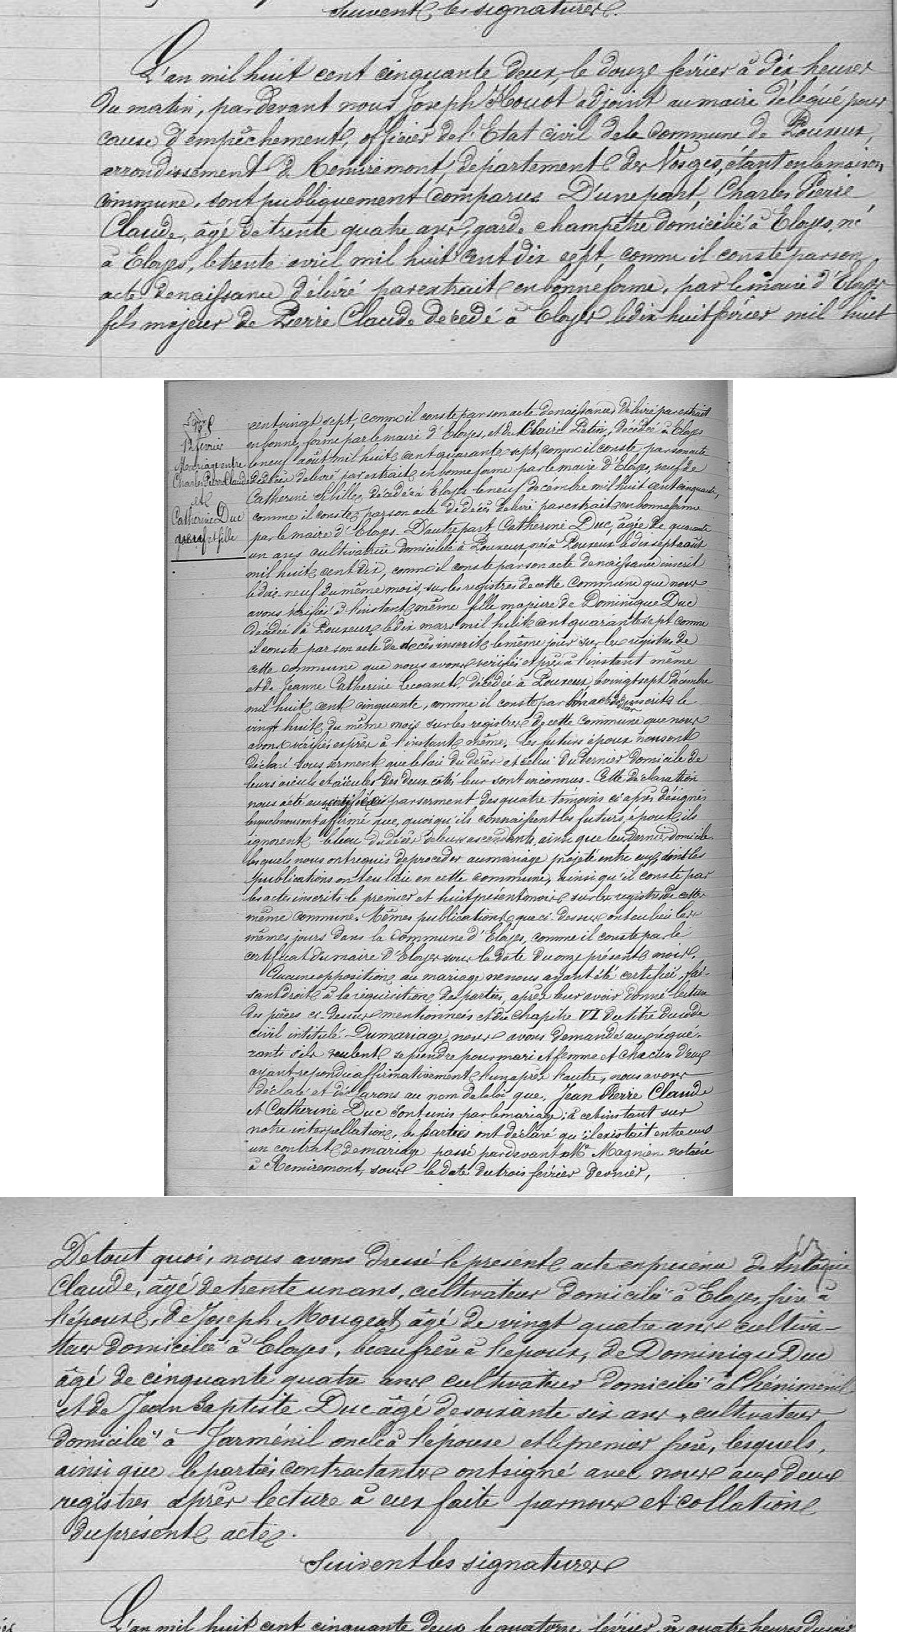 Suivent les signatures.
L'an mil huit cent cinquante deux, le douze février à dix heures
du matin, par devant nous Joseph Houot adjoint au maire délégué pour
cause d'empêchement, officier de l'Etat civil de la commune de Pouxeux,
arrondissement de Remiremont, département des Vosges, étant en la maison
commune, sont publiquement comparus D'une part, Charles Pierre
Claude, âgé de trente quatre ans, garde champêtre domicilié à Eloyes, né
à Eloyes, le trente avril mil huit cent dix sept comme il conste par son
acte de naissance délivré par extrait en bonne forme, par le maire d'Eloyes
fils majeur de Pierre Claude décédé à Eloyes le dix huit février mil huit
12 février
Mariage entre
Charles Pierre Claude
et
Catherine Duc
veuf et fille
cent vingt sept, comme il conste par son acte de naissance délivré par extrait
en bonne forme par le maire d'Eloyes, et de Claire Petin, décédée à Eloyes
le neuf août mil huit cent quarante sept, comme il conste par son acte
de décès délivré par extrait en bonne forme par le maire d'Eloyes, veuf de
Catherine décédée à Eloyes le neuf décembre mil huit cent cinquante,
comme il conste par son acte de décès délivré par extrait en bonne forme
par le maire d'Eloyes. D'autre part Catherine Duc, âgée de quarante
un ans cultivatrice domiciliée à Pouxeux, née à Pouxeux le dix sept août
mil huit cent dix, comme il conste par son acte de naissance inscrit
le dix neuf du même mois, sur les registres de cette commune que nous
avons vérifiés à l'instant même fille majeure de Dominique Duc
décédé à Pouxeux le dix mars mil huit cent quarante sept comme
il conste par son acte de décès inscrit le même jour sur les registres de
cette commune que nous avons vérifiés exprès à l'instant même
et de Jeanne Catherine Lecoanet, décédée à Pouxeux le vingt sept décembre
mil huit cent cinquante, comme il conste par son acte de décès inscrit le
vingt huit du même mois sur les registres de cette commune que nous
avons vérifiés exprès à l'instant même. Les futurs époux nous ont
déclaré sous serment que le lieu du décès et celui du dernier domicile de
leurs aïeuls et aïeules des deux côtés leur sont inconnus. Cette déclaration
nous a été aussi certifiée par serment des quatre témoins ci après désignés
lesquels nous ont affirmé que, quoiqu'ils connaissent les futurs époux, ils
ignorent le lieu du décès de leurs ascendants, ainsi que leur dernier domicile
lesquels nous ont requis de procéder au mariage projeté entre eux, dont les
publications ont eu lieu en cette commune, ainsi qu'il conste par
les actes inscrits le premier et huit présent mois sur les registres de cette
même commune. Mêmes publications que ci dessus ont eu lieu les
mêmes jours dans la commune d'Eloyes, comme il conste par le
certificat du maire d'Eloyes sous la date du onze présent mois.
Aucune opposition au mariage ne nous ayant été certifiée, fai-
sant droit à la réquisition des parties, après leur avoir donné lecture
des pièces ci dessus mentionnées et du chapitre VI du titre du code
civil intitulé Du mariage, nous avons demandé aux requé-
rants s'ils veulent se prendre pour mari et femme et chacun d'eux
ayant répondu affirmativement l'un après l'autre, nous avons
déclaré et déclarons au nom de la loi que, Jean Pierre Claude
et Catherine Duc sont unis par le mariage; à cet instant sur
notre interpellation, les parties ont déclaré qu'il existait entre eux
un contrat de mariage passé par devant Me Magnien notaire
à Remiremont, sous la date du trois février dernier,
De tout quoi, nous avons dressé le présent acte en présence de
Claude, âgé de trente un ans, cultivateur domicilié à Eloyes, frère à
l'époux, de Joseph Mougeat âgé de vingt quatre ans cultiva-
teur domicilié à Eloyes, beau frère à l'époux, de Dominique Duc
âgé de cinquante quatre ans cultivateur domicilié à Chéniménil
et de Jean Baptiste Duc âgé de soixante six ans, cultivateur
domicilié à Jarménil oncle à l'épouse et le premier frère, lesquels,
ainsi que les parties contractantes ont signé avec nous aux deux
registres après lecture à eux faite par nous et collation
du présent acte.
Suivent les signatures
L'an mil huit cent cinquante deux le quatorze février, à quatre heures du soir